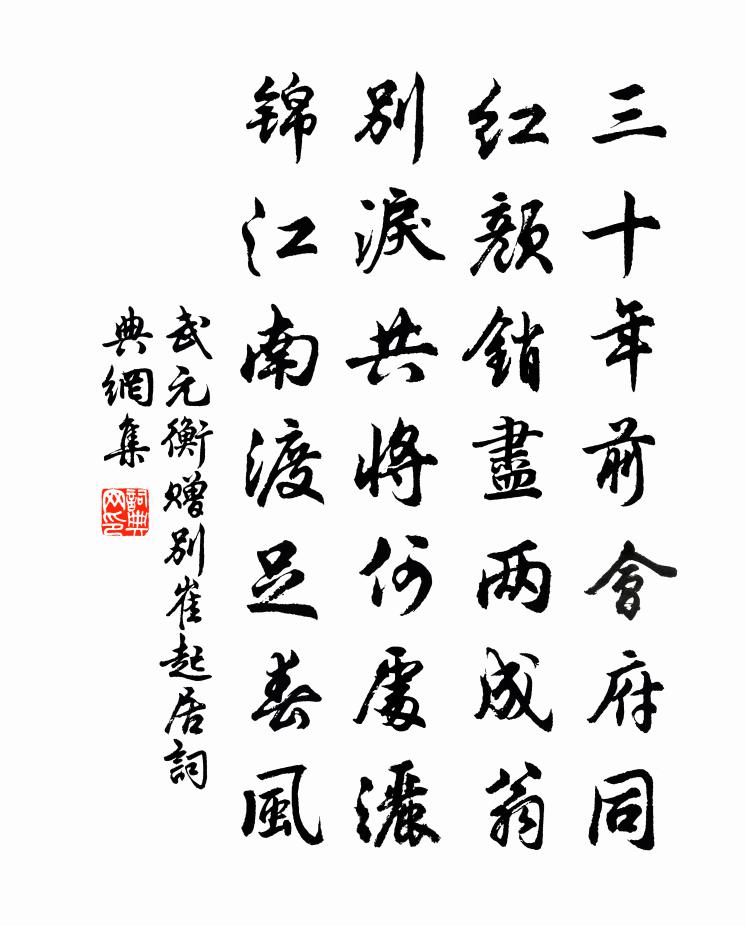 三十年前會府同
紅顏銷盡两成翁
別淚共將何處灑
锦江南渡足春風
武元衡赠別崔起居詞
典網集
詞典网印